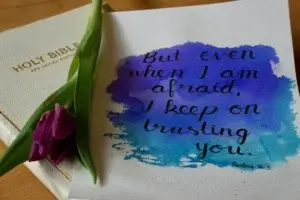 HOLY BIBLE
But even
when I am
afraid,
I keep on
trusting
you.
Psalms